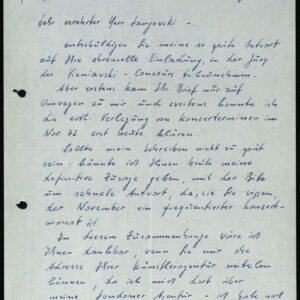 Sehr verehrter Herr Sangovski -
entschuldigen Sie meine so späte Antwort
auf Ihre ehrenvolle Einladung, in der Jury
des Vieniavski - Concours teilzunehmen.
Aber erstens kam Ihr Brief nur auf
Umwegen zu mir und zweitens konnte ich
die evtl. Verlegung von Konzertterminen im
Nov. 72 erst heute klären.
Sollte mein Schreiben nicht zu spät
sein, könnte ich Ihnen heute meine
definitive Zusage geben, mit der Bitte
um schnelle Antwort, da, wie Sie wissen,
der November ein frequentierter Konzert-
monat ist.
In diesem Zusammenhange wäre ich
Ihnen dankbar, wenn Sie mir die
Adresse Ihrer Künstleragentur mitteilen
können, da ich mich dort über
meine Londoner Agentur